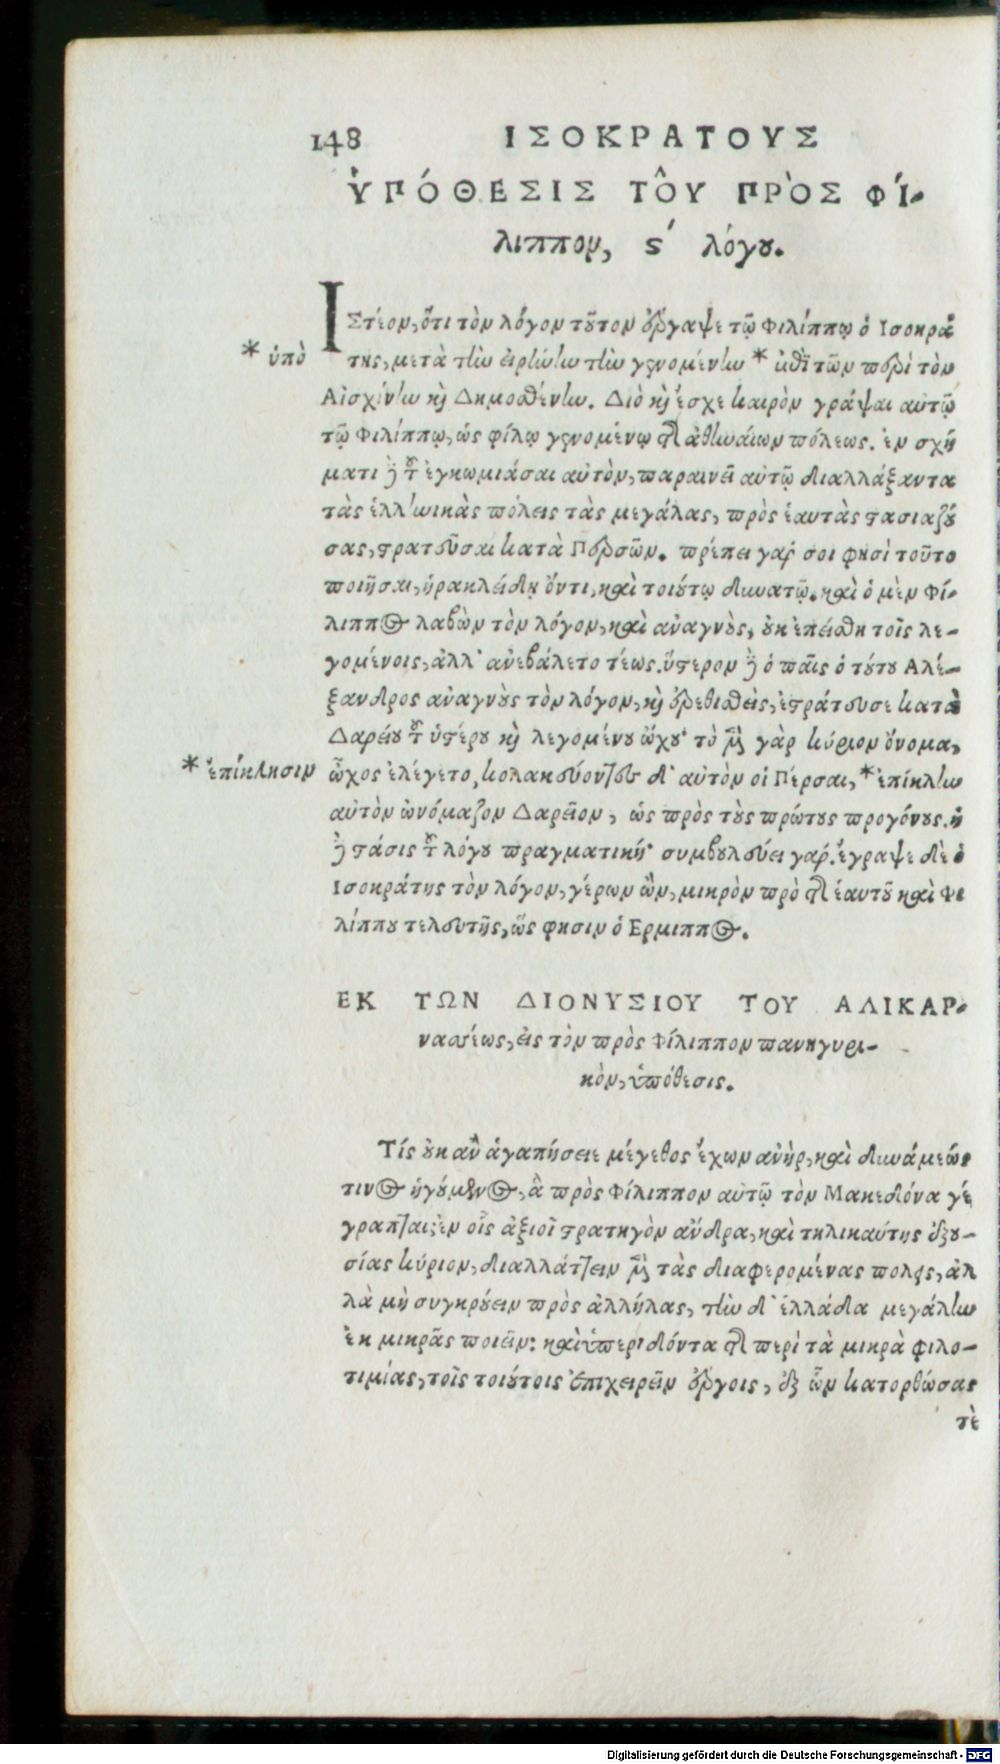 148 ΙΣΟΚΡΑΤΟΥΣ
ὙΠΌΘΕΣΙΣ ΤΟ͂Υ ΠΡῸΣ ΦΊ-
λιππον, ϛ´ λόγου.
ΙΣτέον, ὅτι τὸν λόγον τοῦτον ἔγραψε τῷ Φιλίππῳ ὁ Ισοκρά
* ὑπὸ
της, μετὰ τὴν εἰρήνην τὴν γενομένην * τῶν περὶ τὸν
Αἰσχίνην καὶ Δημοσθένην. Διὸ καὶ ἔσχε καιρὸν γράψαι αὐτῷ
τῷ Φιλίππῳ, ὡς φίλῳ γενομένῳ τῆς ἀθηναίων πόλεως. ἐν σχή
ματι δὲ τοῦ ἐγκωμιάσαι αὐτὸν, παραινεῖ αὐτῷ διαλλάξαντα
τὰς ἑλληνικὰς πόλεις τὰς μεγάλας, πρὸς ἑαυτὰς στασιαζού
σας, στρατεῦσαι κατὰ Περσῶν. πρέπει γάρ σοι φησὶ τοῦτο
ποιῆσαι, ἡρακλείδῃ ὄντι, καὶ τοιούτῳ δυνατῷ. καὶ ὁ μὲν Φί-
λιππος λαβὼν τὸν λόγον, καὶ ἀναγνοὺς, οὐκ ἐπείσθη τοῖς λε-
γομένοις, ἀλλ' ἀνεβάλετο τέως. ὕστερον δὲ ὁ παῖς ὁ τούτου Αλέ-
ξανδρος ἀναγνοὺς τὸν λόγον, καὶ ἐρεθισθεὶς, ἐστράτευσε κατὰ
Δαρείου τοῦ ὑστέρου καὶ λεγομένου ὤχου· τὸ μὲν γὰρ κύριον ὄνομα,
* ἐπίκλησιν
ὦχος ἐλέγετο, κολακεύοντες δ' αὐτὸν οἱ Πέρσαι, * ἐπίκλην
αὐτὸν ὠνόμαζον Δαρεῖον, ὡς πρὸς τοὺς πρώτους προγόνους. ἡ
δὲ στάσις τοῦ λόγου πραγματική· συμβουλεύει γάρ. ἔγραψε δὲ ὁ
Ισοκράτης τὸν λόγον, γέρων ὢν, μικρὸν πρὸ τῆς ἑαυτοῦ καὶ Φι
λίππου τελευτῆς, ὥς φησιν ὁ Ερμιππος.
ΕΚ ΤΩΝ ΔΙΟΝΥΣΙΟΥ ΤΟΥ ΑΛΙΚΑΡ-
νασέως, εἰς τὸν πρὸς Φίλιππον πανηγυρι-
κὸν, ὑπόθεσις.
Τίς οὐκ ἂν ἀγαπήσειε μέγεθος ἔχων ἀνὴρ, καὶ δυνάμεώς
τινος ἡγούμενος, ἃ πρὸς Φίλιππον αὐτῷ τὸν Μακεδόνα γέ
γραπται; ἐν οἷς ἀξιοῖ στρατηγὸν ἄνδρα, καὶ τηλικαύτης ἐξου-
σίας κύριον, διαλλάττειν μὲν τὰς διαφερομένας πόλεις, ἀλ
λὰ μὴ συγκρούειν πρὸς ἀλλήλας, τὴν δ' ἑλλάδα μεγάλην
ἐκ μικρᾶς ποιεῖν: καὶ ὑπεριδόντα τῆς περὶ τὰ μικρὰ φιλο-
τιμίας, τοῖς τοιούτοις ἐπιχειρεῖν ἔργοις, ἐξ ὧν κατορθώσας
τὲ
Digitalisierung gefördert durch die Deutsche Forschungsgemeinschaft - DFG